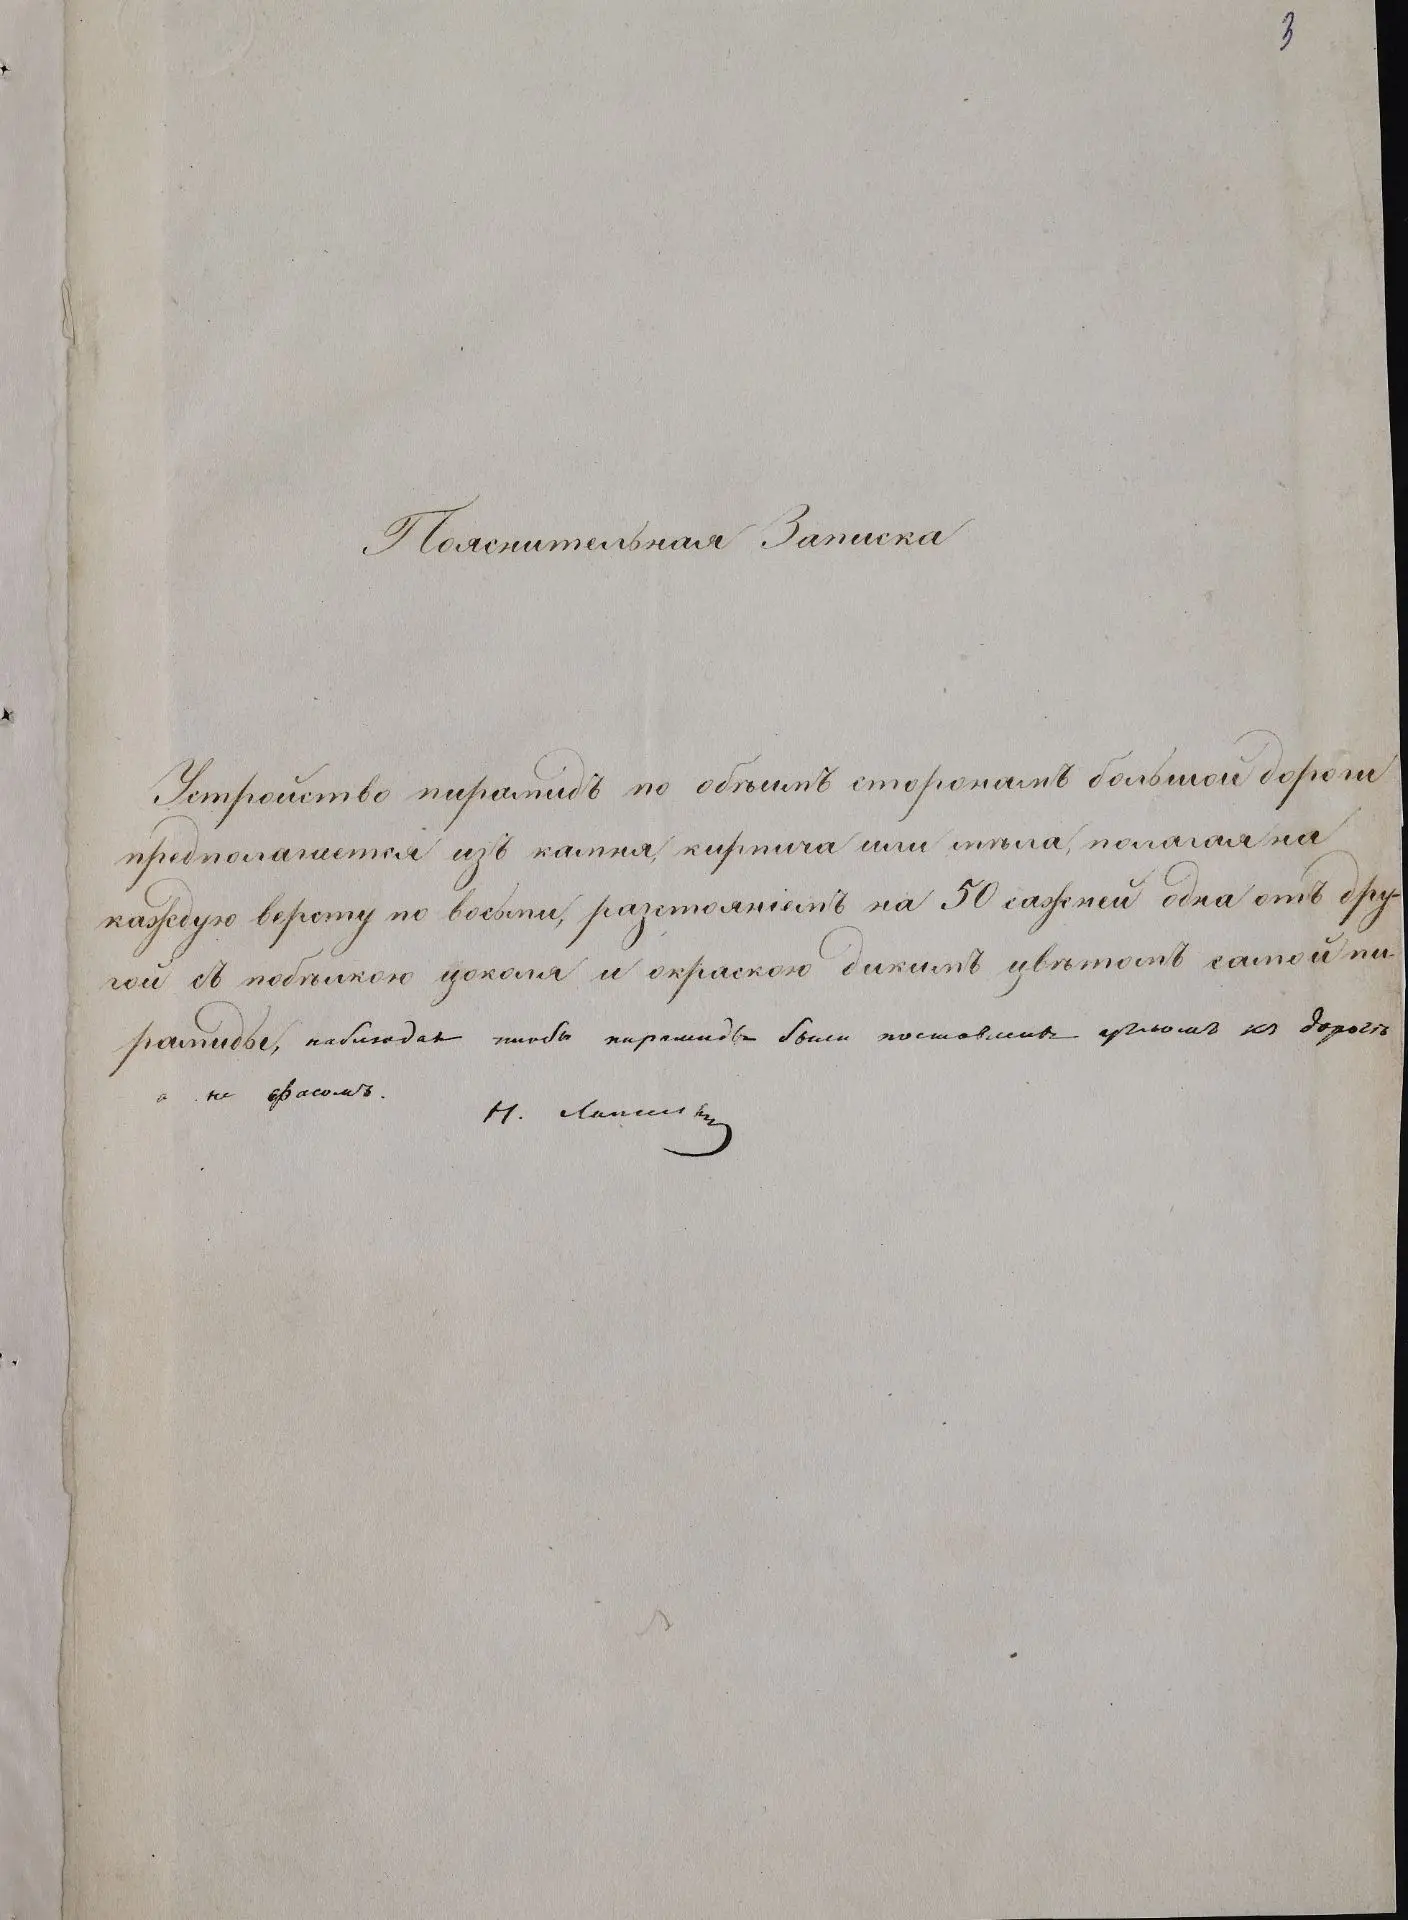 3
Пояснительная Записка
Устройство пирамидъ по обѣимъ сторонамъ большой дороги
предполагается изъ камня, кирпича или мѣла, полагая на
каждую версту по восьми, разстояніемъ на 50 саженей одна отъ дру-
гой съ побѣлкою цоколя и окраскою дикимъ цвѣтомъ самой пи-
рамиды, наблюдая чтобы пирамиды были поставлены угломъ къ дорогѣ
а не фасомъ.
Н.